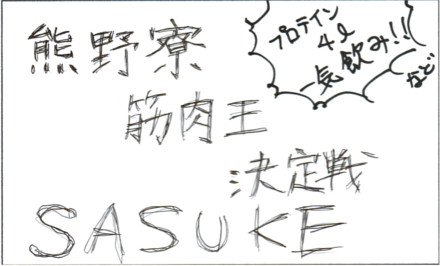 熊野寮
筋肉王
決定戦
SASUKE
プロテイン
4l
一気飲み!!
など